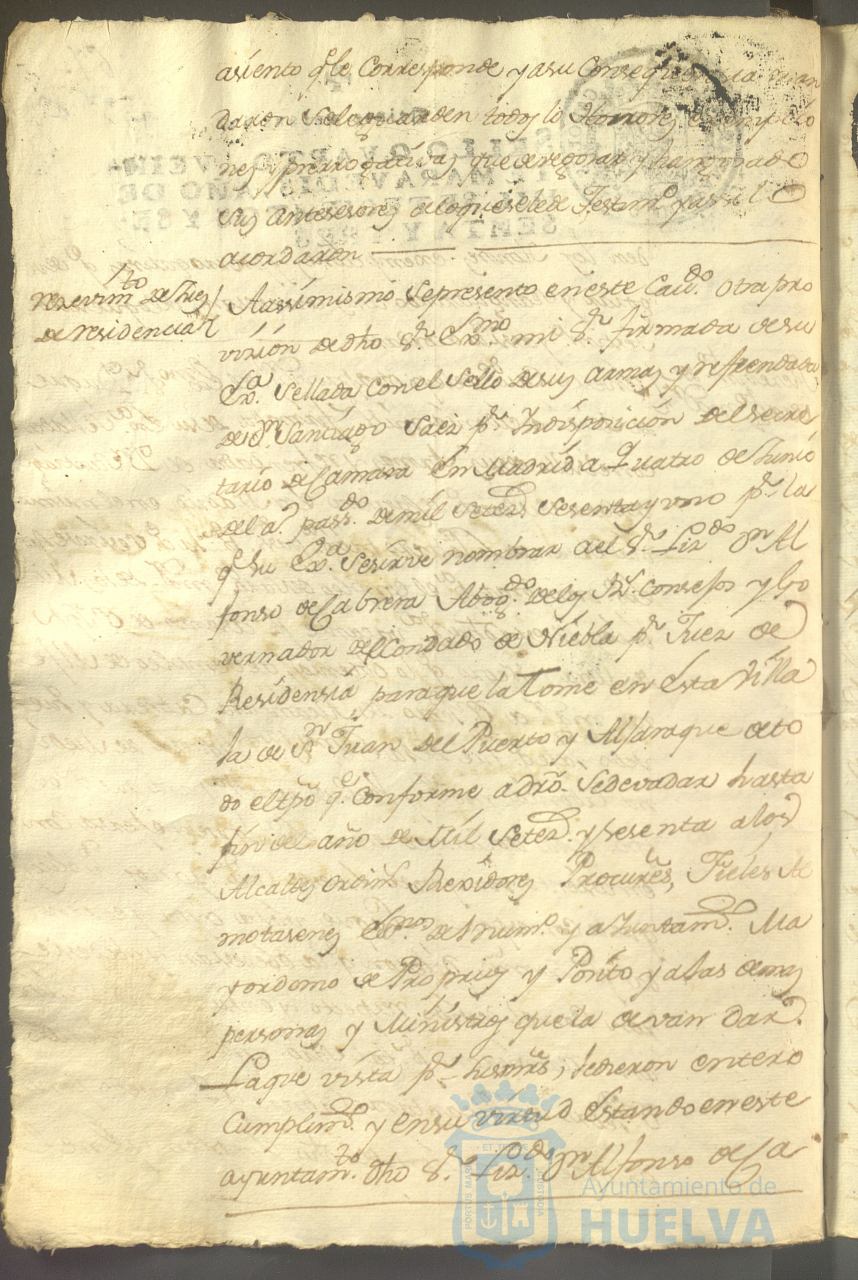 asiento q.e le Corresponde y a su Consequencia man
daron Se le guarden todos los Honores esempcio
nes y prerrogativas que
Sus antesesores de lo que se le de Testim.o y assi lo
acordaron
rezevim.to de Juez
de residencia
Aassimismo Se presento en este Cav.do Otra pro
vizión de dho S.r Ex.mo mi S.r firmada de su
Ex.a Sellada con el Sello de sus Armas y refrendada
de D.n Santiago Saez p.r Indisposición del secre
tario de Camara En Madrid a Quatro de Junio
del a.o pass.do de mil Setez.s Sesenta y uno p.r la
q.e su Ex.a Se sirve nombrar a el S.r Liz.do D.n Al
fonso de Cabrera Abog.do de los R.s Consejos y Go
vernador del Condado de Niebla p.r Juez de
Residensia para que la Tome en Esta Villa
la de S.n Juan del Puerto y Aljaraque de to
do el tpo q.e Conforme a dro. Se deva dar hasta
fin del año de Mil Setez.s y sesenta a los
Alcaldes ordin.s Rexidores Procur.es, Fieles Al
motasenes Ess.nos de Num.o y Ayuntam.to Ma
yordomo de Proprios y Posito y a las demas
personas y Ministros que la devan dar.
La que vista p.r sus m.rs, le dieron entero
Cumplim.to y en su virtud Estando en este
ayuntam.to dho S.r Liz.do D.n Alfonso de Ca
Ayuntamiento de
HUELVA